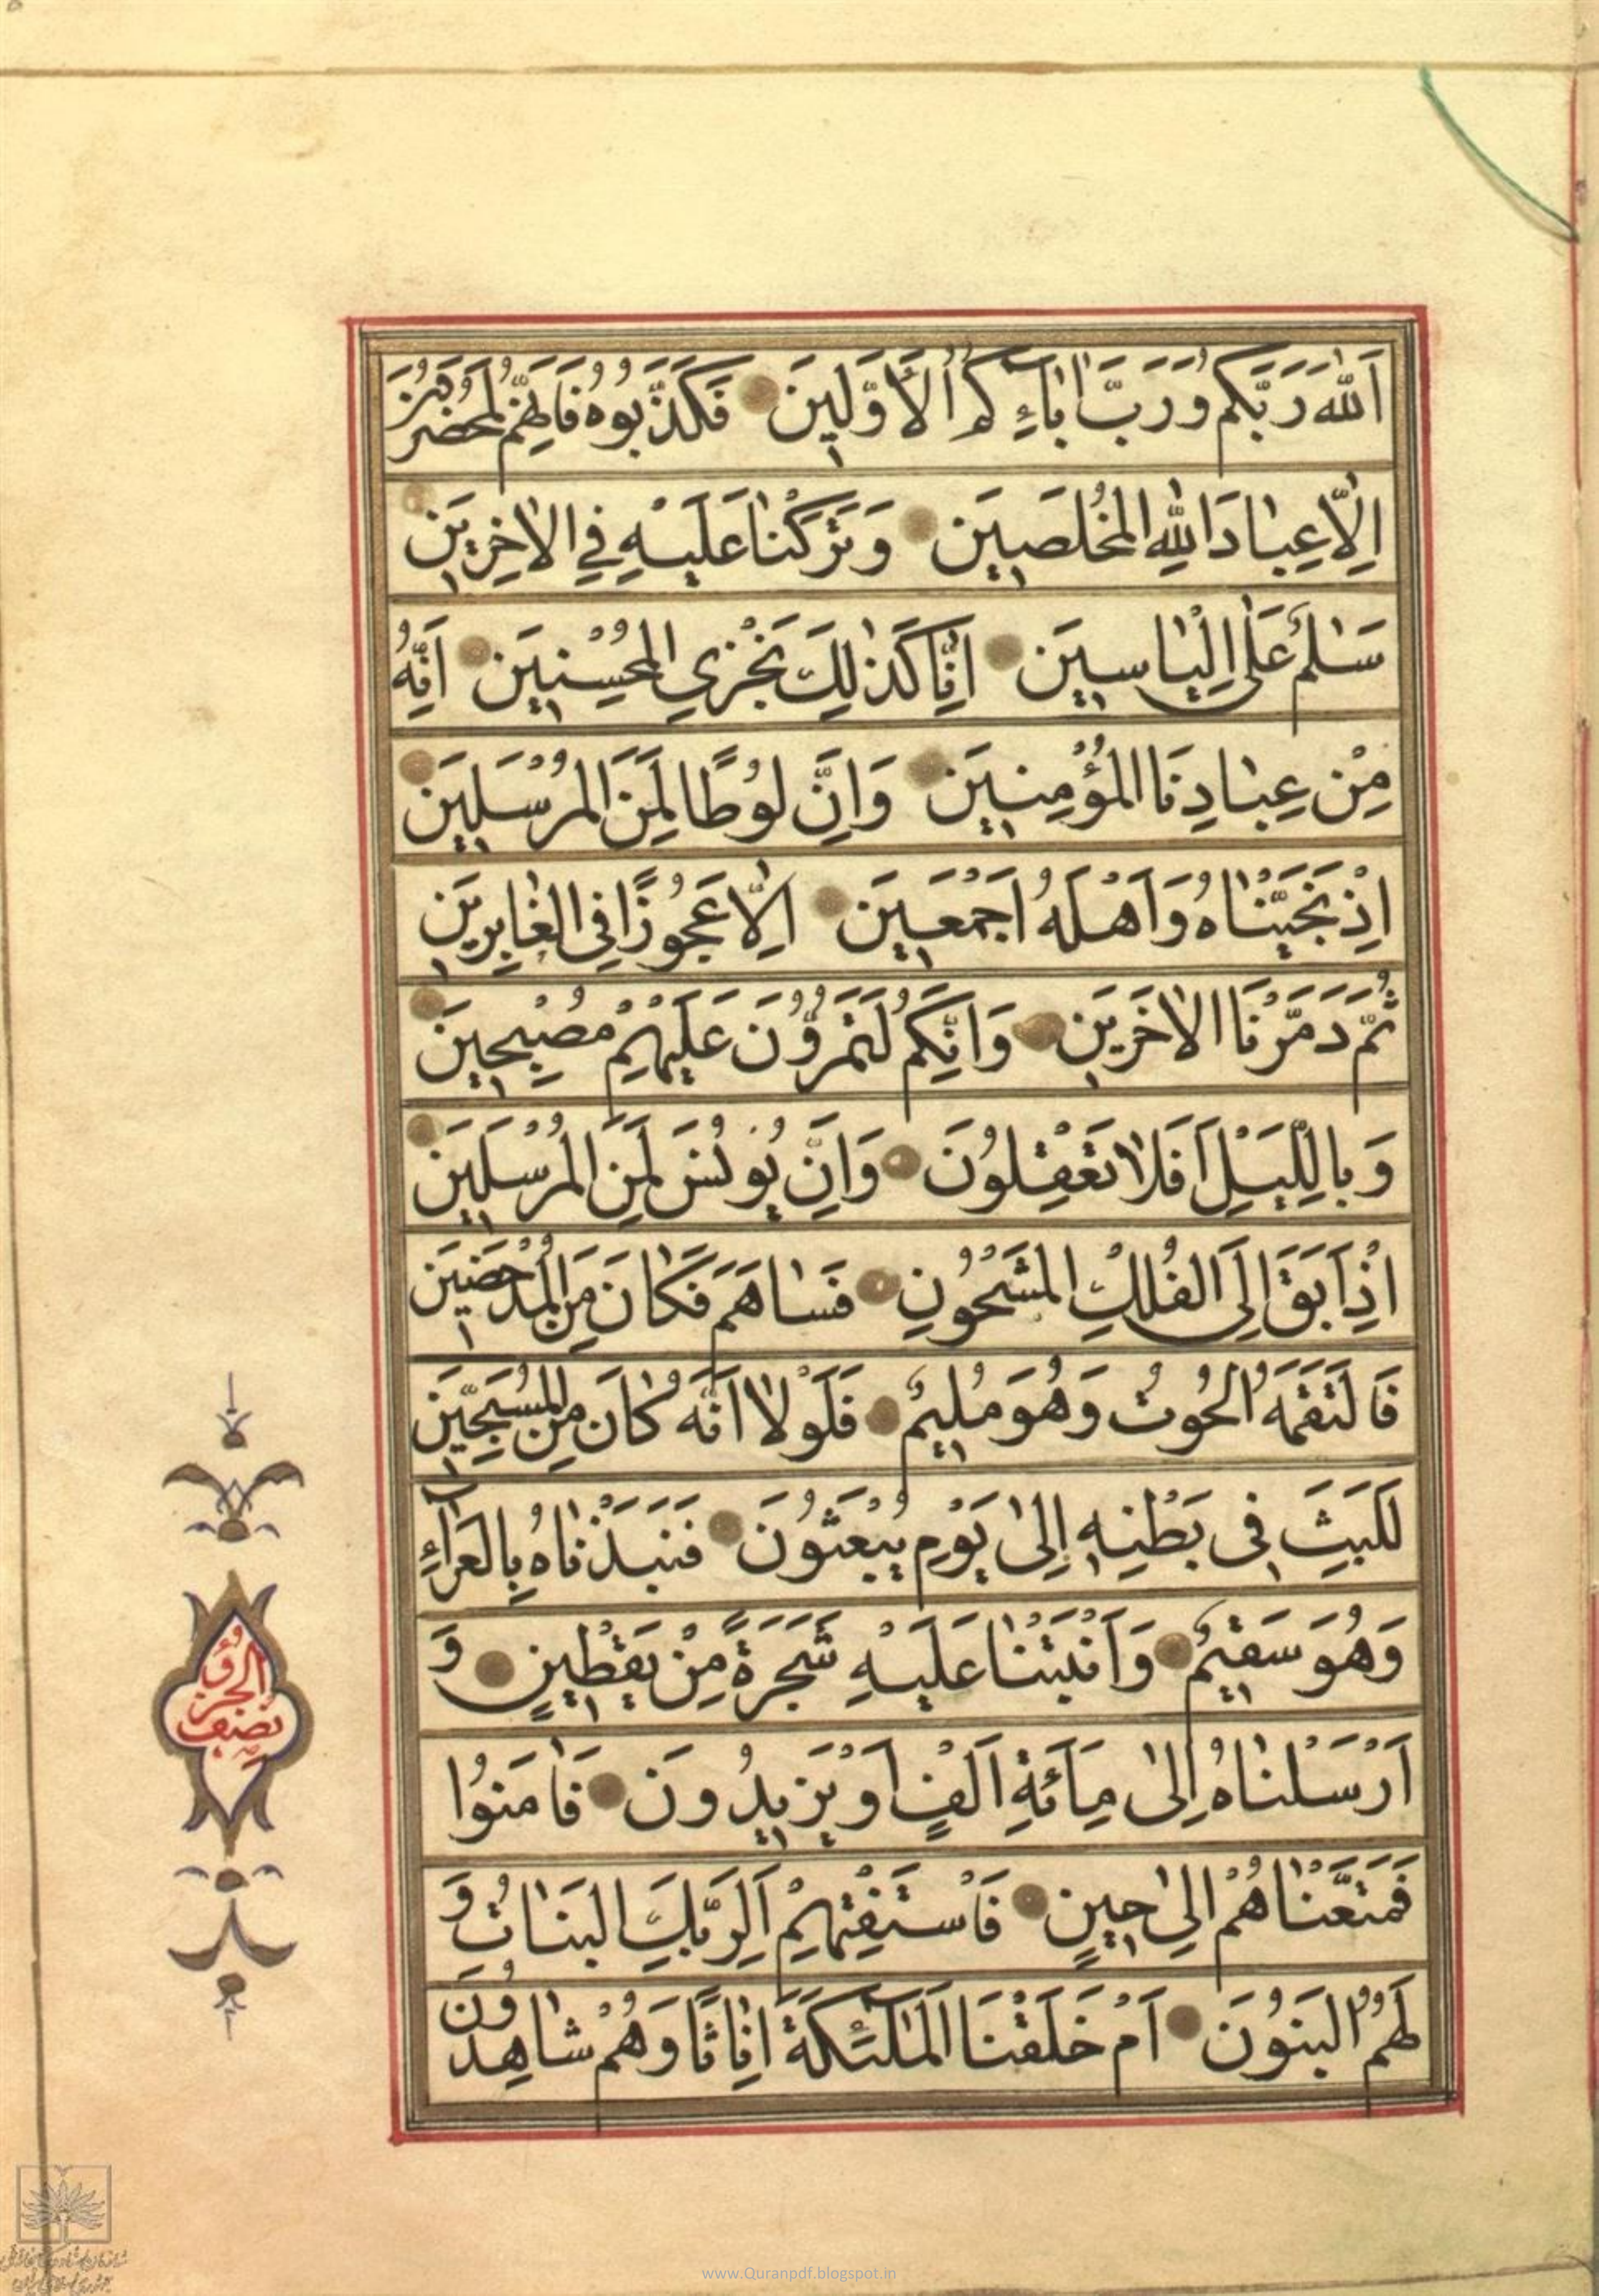 اَللّٰهَ رَبَّكُمْ وَرَبَّ اٰبَآءِكُمُ الْاَوَّلينَ فَكَذَّبُوهُ فَاِنَّهُمْ لَمُحْضَرُونَ
اِلّٰا عِبٰادَ اللّٰهِ الْمُخْلَصينَ وَتَرَكْنٰا عَلَيْهِ فِي الْاٰخِرينَ
سَلٰمٌ عَلٰى اِلْيٰاسينَ اِنّٰا كَذٰلِكَ نَجْزِي الْمُحْسِنينَ اِنَّهُ
مِنْ عِبٰادِنَا الْمُؤْمِنينَ وَاِنَّ لُوطًا لَمِنَ الْمُرْسَلينَ
اِذْ نَجَّيْنٰاهُ وَاَهْلَهُ اَجْمَعينَ اِلّٰا عَجُوزًا فِي الْغٰابِرينَ
ثُمَّ دَمَّرْنَا الْاٰخَرينَ وَاِنَّكُمْ لَتَمُرُّونَ عَلَيْهِمْ مُصْبِحينَ
وَبِاللَّيْلِ اَفَلٰا تَعْقِلُونَ وَاِنَّ يُونُسَ لَمِنَ الْمُرْسَلينَ
اِذْ اَبَقَ اِلَى الْفُلْكِ الْمَشْحُونِ فَسٰاهَمَ فَكٰانَ مِنَ الْمُدْحَضينَ
فَالْتَقَمَهُ الْحُوتُ وَهُوَ مُليمٌ فَلَوْلٰا اَنَّهُ كٰانَ مِنَ الْمُسَبِّحينَ
لَلَبِثَ في بَطْنِه اِلٰى يَوْمِ يُبْعَثُونَ فَنَبَذْنٰاهُ بِالْعَرَآءِ
وَهُوَ سَقيمٌ وَاَنْبَتْنٰا عَلَيْهِ شَجَرَةً مِنْ يَقْطينٍ وَ
اَرْسَلْنٰاهُ اِلٰى مِائَةِ اَلْفٍ اَوْ يَزيدُونَ فَاٰمَنُوا
فَمَتَّعْنٰاهُمْ اِلٰى حينٍ فَاسْتَفْتِهِمْ اَلِرَبِّكَ الْبَنٰاتُ وَ
لَهُمُ الْبَنُونَ اَمْ خَلَقْنَا الْمَلٰٓئِكَةَ اِنٰاثًا وَهُمْ شٰاهِدُونَ
نصف
www.Quranpdf.blogspot.in